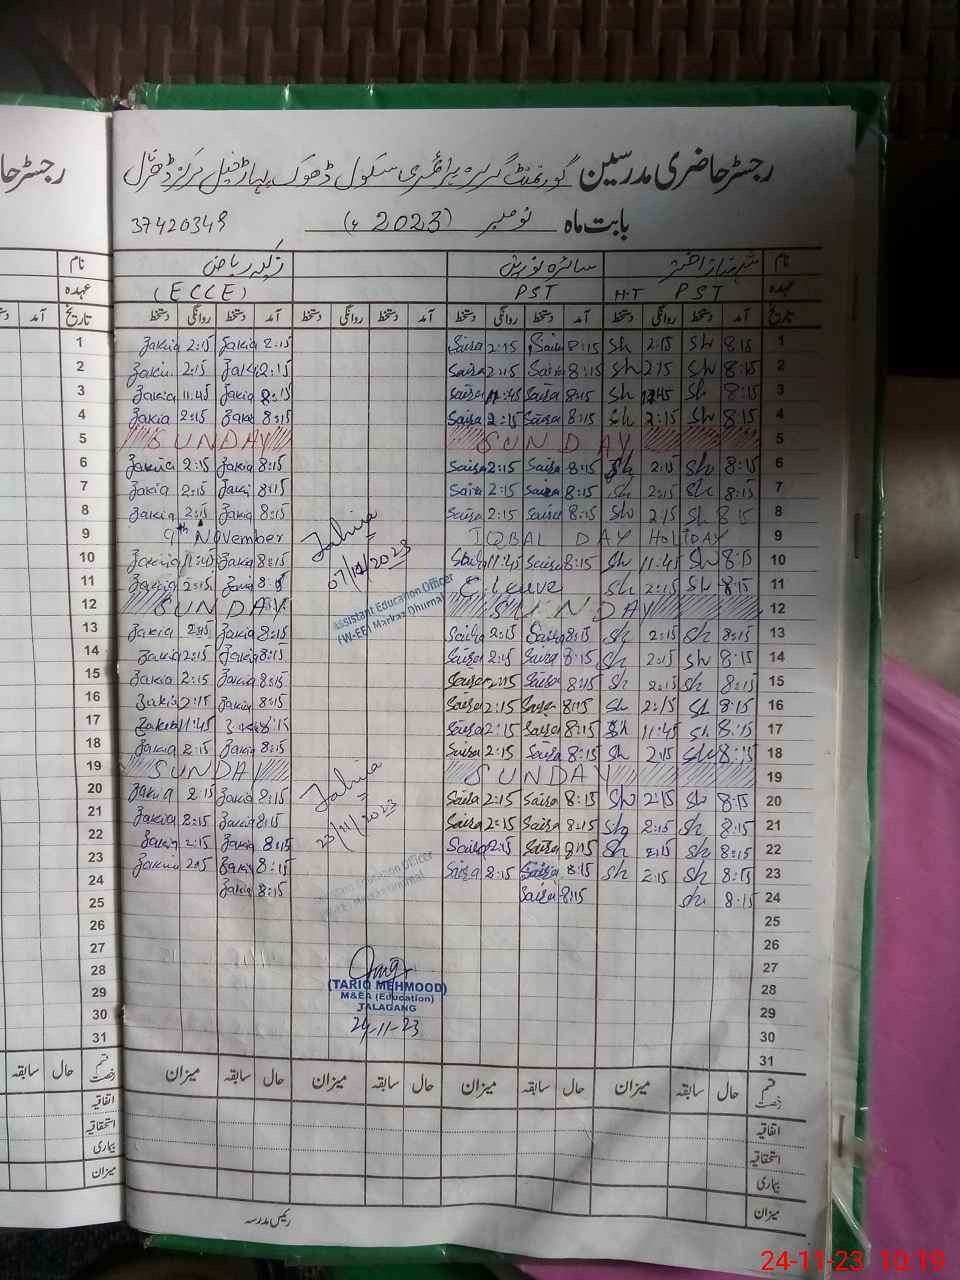 رجسٹر حاضری مدرسین گورنمنٹ گرلز پرائمری سکول ڈھوک پہاڑ خیل مرکز ڈھرنال
بابت ماہ نومبر (2023ء) 37420349
نام شہناز اختر سائرہ نورین زکیہ ریاض
عہدہ PST H.T PST (ECCE)
تاریخ آمد دستخط روانگی دستخط آمد دستخط روانگی دستخط آمد دستخط روانگی دستخط آمد دستخط روانگی دستخط
1 Zakia 2:15 Zakia 2:15 Saira 2:15 Saira 8:15 Sh 2:15 Sh 8:15 1
2 Zakia 2:15 Zakia 2:15 Saira 2:15 Saira 8:15 Sh 2:15 Sh 8:15 2
3 Zakia 11:45 Zakia 8:15 Saira 11:45 Saira 8:15 Sh 11:45 Sh 8:15 3
4 Zakia 2:15 Zakia 8:15 Saira 2:15 Saira 8:15 Sh 2:15 Sh 8:15 4
5 SUNDAY SUNDAY 5
6 Zakia 2:15 Zakia 8:15 Saira 2:15 Saira 8:15 Sh 2:15 Sh 8:15 6
7 Zakia 2:15 Zaki 8:15 Saira 2:15 Saira 8:15 Sh 2:15 Sh 8:15 7
8 Zakia 2:15 Zakia 8:15 Saira 2:15 Saira 8:15 Sh 2:15 Sh 8:15 8
9 9th November IQBAL DAY HoliDAY 9
10 Zakia 11:45 Zakia 8:15 Saira 11:45 Saira 8:15 Sh 11:45 Sh 8:15 10
11 Zakia 2:15 Zakia 8:15 C. Leave Sh 2:15 Sh 8:15 11
12 SUNDAY SUNDAY 12
13 Zakia 2:15 Zakia 8:15 Saira 2:15 Saira 8:15 Sh 2:15 Sh 8:15 13
14 Zakia 2:15 Zakia 8:15 Saira 2:15 Saira 8:15 Sh 2:15 Sh 8:15 14
15 Zakia 2:15 Zakia 8:15 Saira 2:15 Saira 8:15 Sh 2:15 Sh 8:15 15
16 Zakia 2:15 Zakia 8:15 Saira 2:15 Saira 8:15 Sh 2:15 Sh 8:15 16
17 Zakia 11:45 Zakia 8:15 Saira 2:15 Saira 8:15 Sh 11:45 Sh 8:15 17
18 Zakia 2:15 Zakia 8:15 Saira 2:15 Saira 8:15 Sh 2:15 Sh 8:15 18
19 SUNDAY SUNDAY 19
20 Zakia 2:15 Zakia 8:15 Saira 2:15 Saira 8:15 Sh 2:15 Sh 8:15 20
21 Zakia 2:15 Zakia 8:15 Saira 2:15 Saira 8:15 Sh 2:15 Sh 8:15 21
22 Zakia 2:15 Zakia 8:15 Saira 2:15 Saira 8:15 Sh 2:15 Sh 8:15 22
23 Zakia 2:15 Zakia 8:15 Saira 2:15 Saira 8:15 Sh 2:15 Sh 8:15 23
24 Zakia 8:15 Saira 8:15 Sh 8:15 24
25 25
26 26
27 27
28 28
29 29
30 30
31 31
Assistant Education Officer
(W-EE) Markaz Dhurnal
23/11/2023
(TARIQ MEHMOOD)
M&EA (Education)
TALAGANG
24-11-23
قسم رخصت حال سابقہ میزان حال سابقہ میزان حال سابقہ میزان حال سابقہ میزان
اتفاقیہ
استحقاقیہ
بیماری
میزان
رئیس مدرسہ
24-11-23 10:19